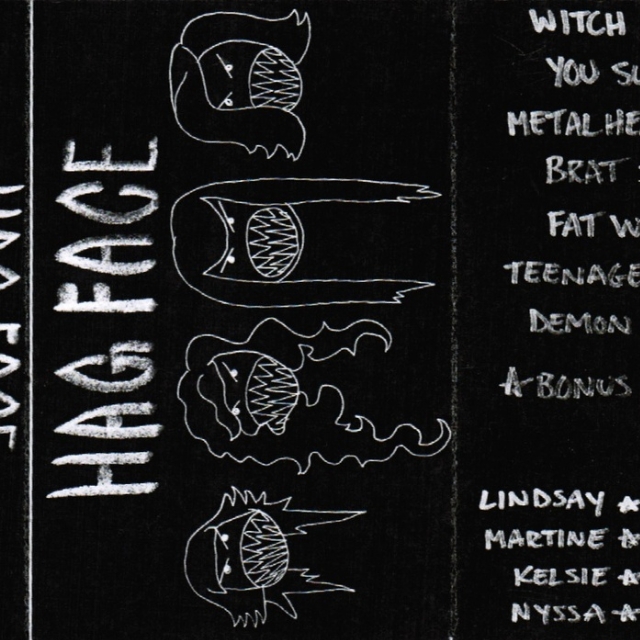 HAG FACE
WITCH
YOU SU
METALHE
BRAT S
FAT W
TEENAGE
DEMON
A BONUS
LINDSAY ★
MARTINE ★
KELSIE ★
NYSSA ★